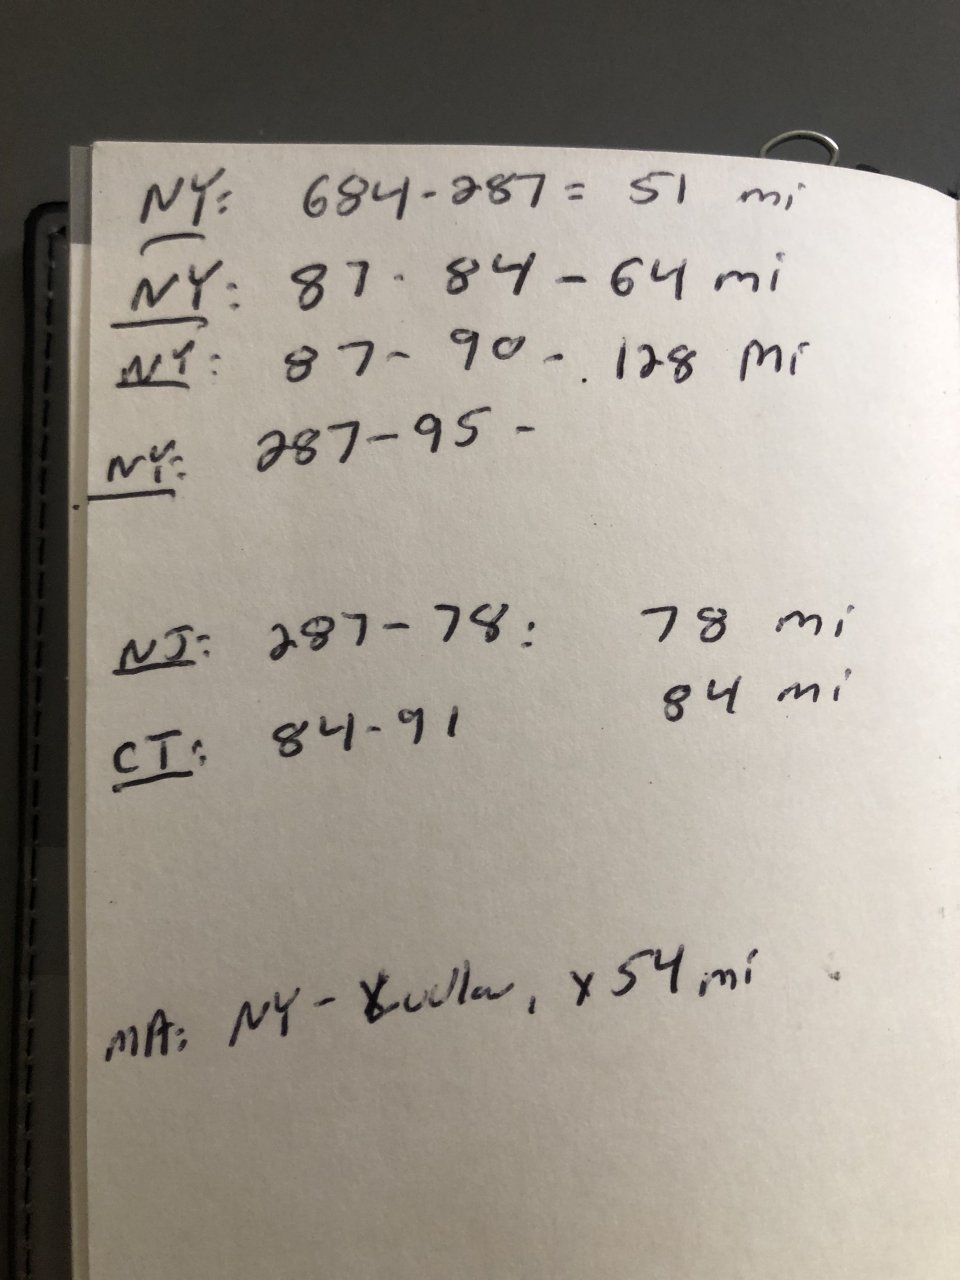 NY: 684-287 = 51 mi
NY: 87-84 - 64 mi
NY: 87-90 - 128 Mi
NY: 287-95 -
NJ: 287-78: 78 mi
CT: 84-91 84 mi
MA: NY - , x 54 mi